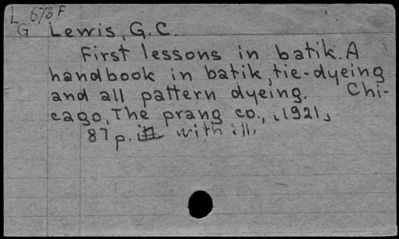 L 673F
G Lewis, G.C.
First lessons in batik. A
handbook in batik, tie-dyeing
and all pattern dyeing. Chi-
cago, The prang co., [1921]
87 p. with ill.